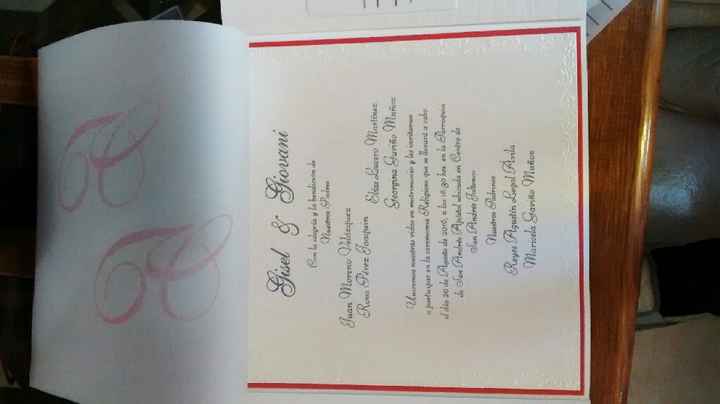 G G
Gisel & Giovani
Con la alegría y la bendición de
Nuestros Padres
Juan Moreno Velázquez
Rosa Pérez Joaquín
Elías Lucero Martínez
Georgina Gaviño Muñoz
Uniremos nuestras vidas en matrimonio y los invitamos
a participar en la ceremonia Religiosa que se llevará a cabo
el día 20 de Agosto de 2016, a las 16:30 hrs. en la Parroquia
de San Andrés Apóstol ubicada en Centro de
San Andrés
Nuestros Padrinos
Reyes Agustín Leyal Ávila
Maricela Gaviño Muñoz